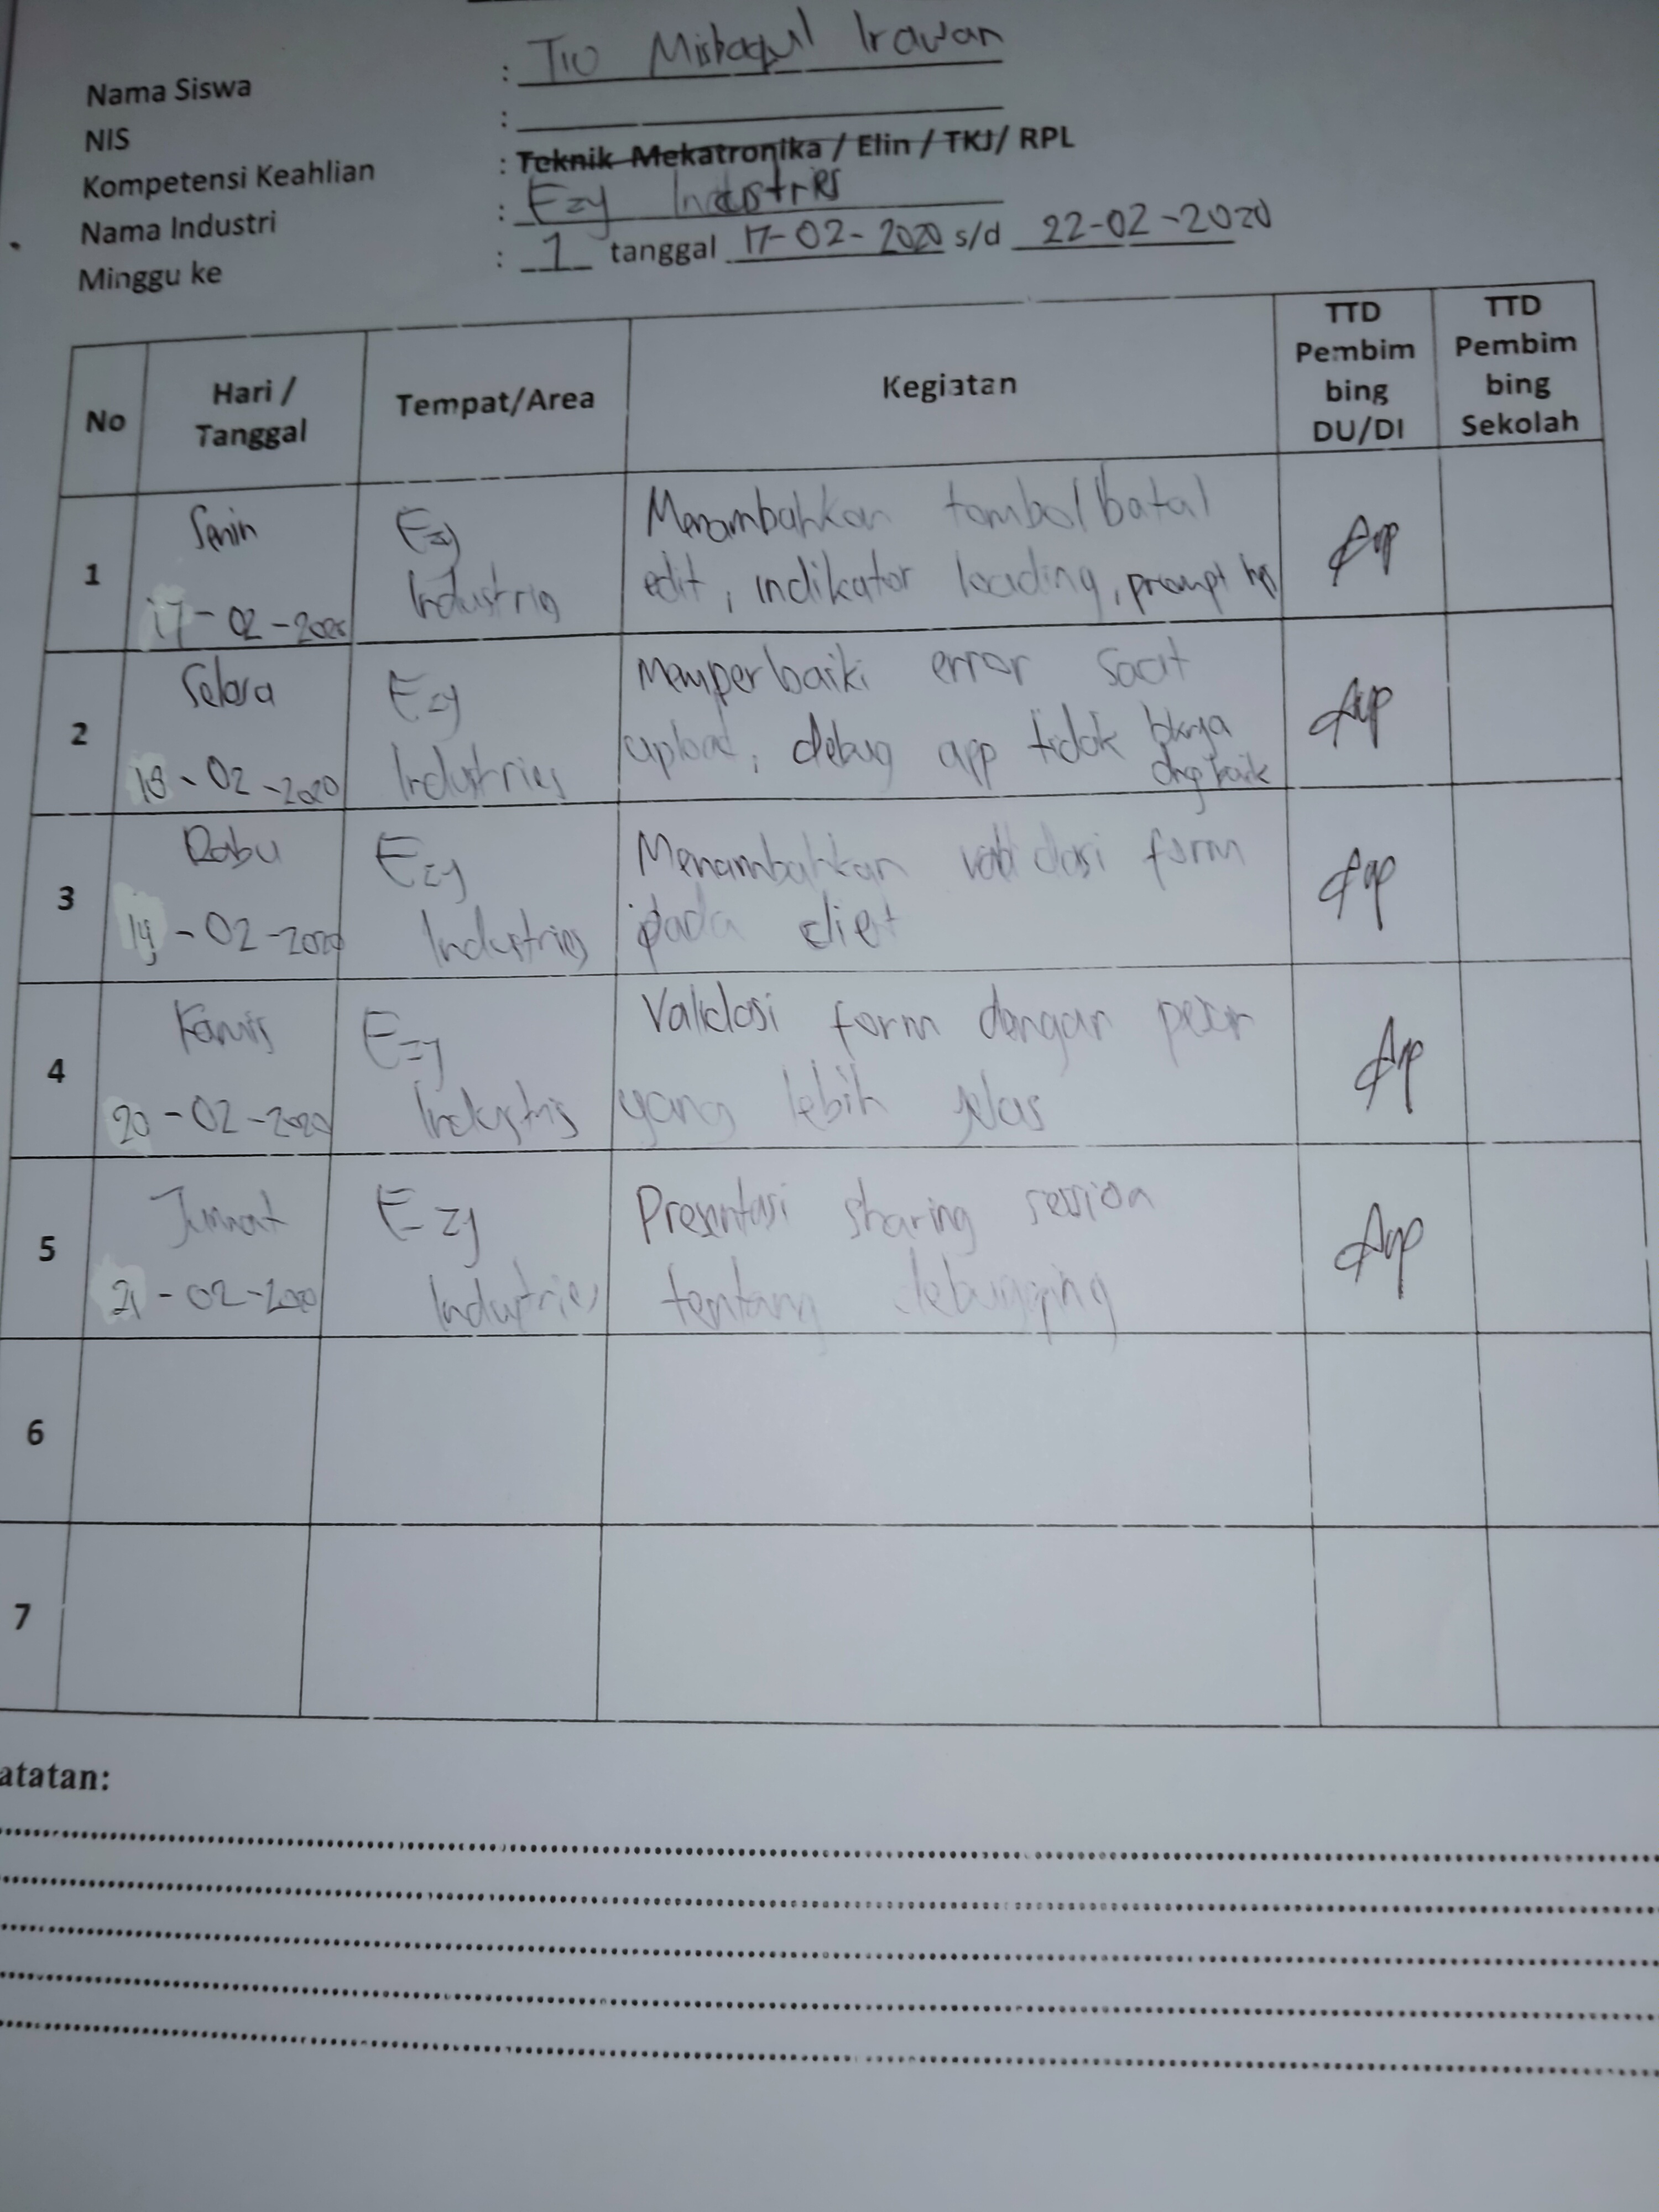 Nama Siswa : Tio Misbaqul Irawan
NIS :
Kompetensi Keahlian : Teknik Mekatronika / Elin / TKJ/ RPL
Nama Industri : Ezy Industries
Minggu ke : 1 tanggal 17-02-2020 s/d 22-02-2020
No
Hari /
Tanggal
Tempat/Area
Kegiatan
TTD
Pembim
bing
DU/DI
TTD
Pembim
bing
Sekolah
1
Senin
17-02-2020
Ezy
Industries
Menambahkan tombol batal
edit, indikator loading, prompt
2
Selasa
18-02-2020
Ezy
Industries
Memperbaiki error saat
upload, debug app tidak bkrja
dng baik
3
Rabu
19-02-2020
Ezy
Industries
Menambahkan validasi form
pada client
4
Kamis
20-02-2020
Ezy
Industris
Validasi form dengan pesan
yang lebih jelas
5
Jumat
21-02-2020
Ezy
Industries
Presentasi sharing session
tentang debugging
6
7
atatan: